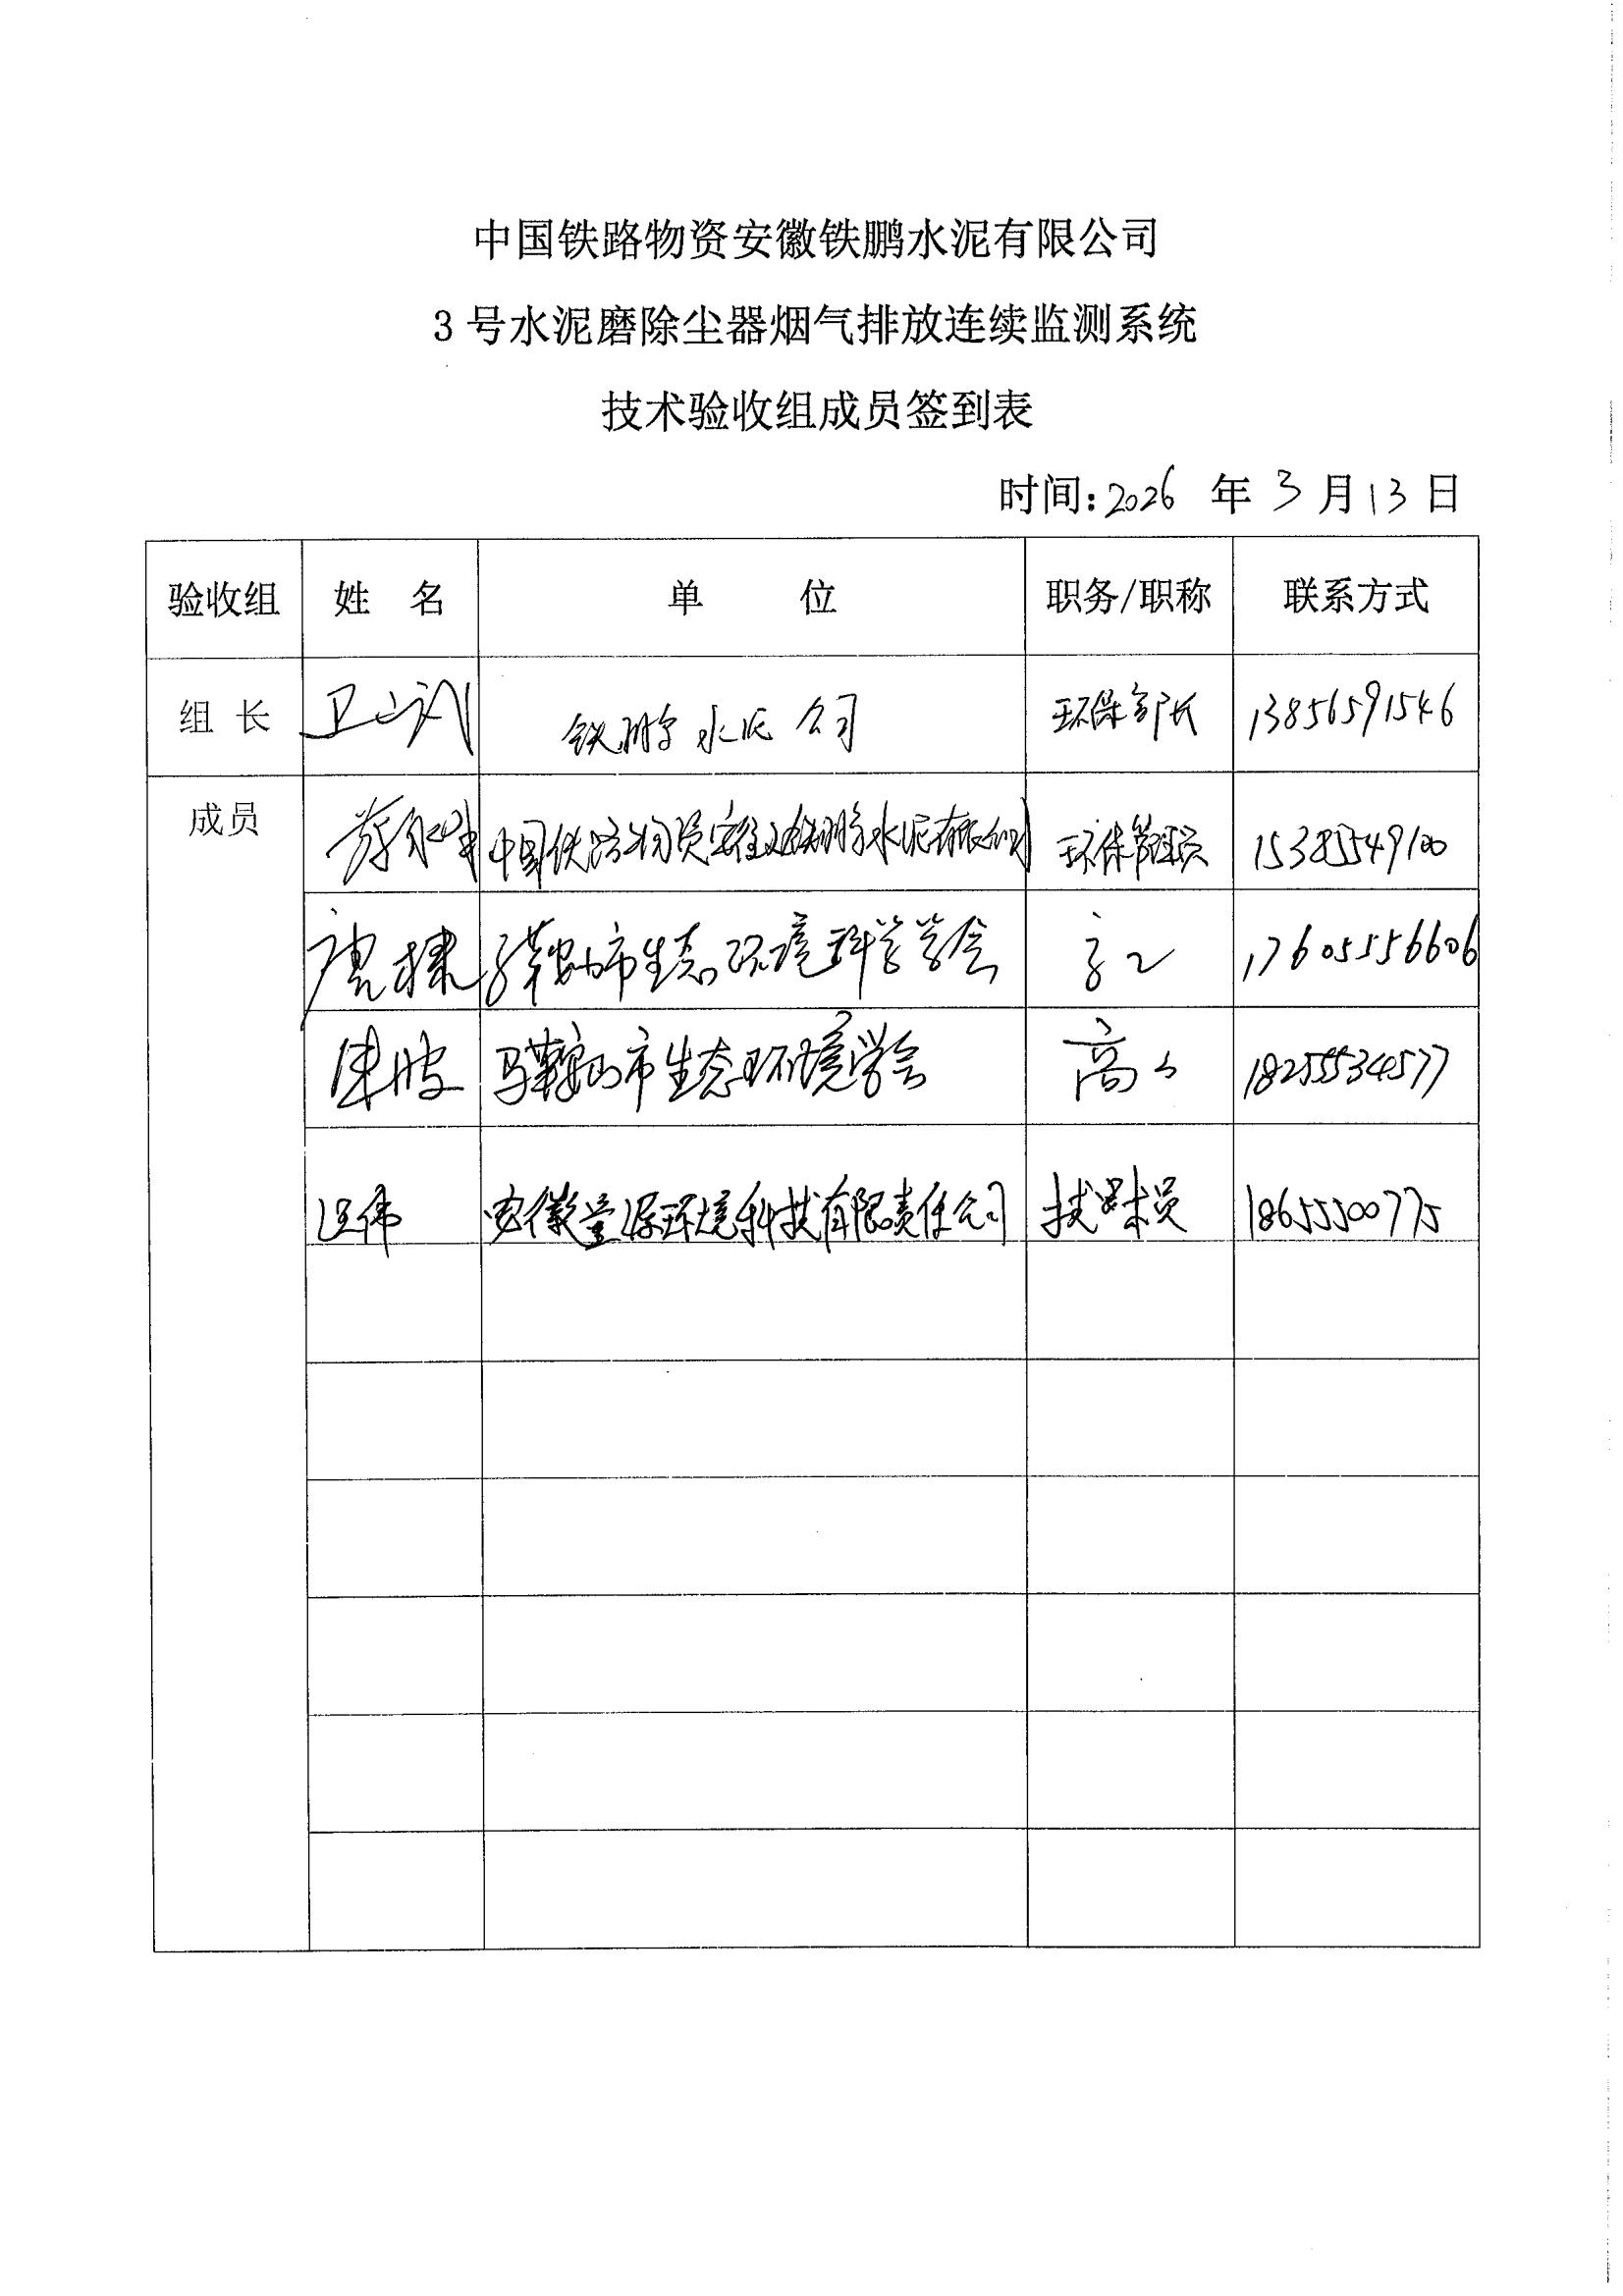 中国铁路物资安徽铁鹏水泥有限公司
3号水泥磨除尘器烟气排放连续监测系统
技术验收组成员签到表
时间:2026 年 3 月 13 日
验收组 姓 名 单 位 职务/职称 联系方式
组 长 铁鹏水泥公司 环保部长 13856591546
成员 中国铁路物资安徽铁鹏水泥有限公司 环保管理员 15385549100
唐棣 马鞍山市生态环境科学学会 高工 17605556606
朱波 马鞍山市生态环境学会 高工 18255534577
伟 安徽 源环境科技有限责任公司 技术员 18655500775